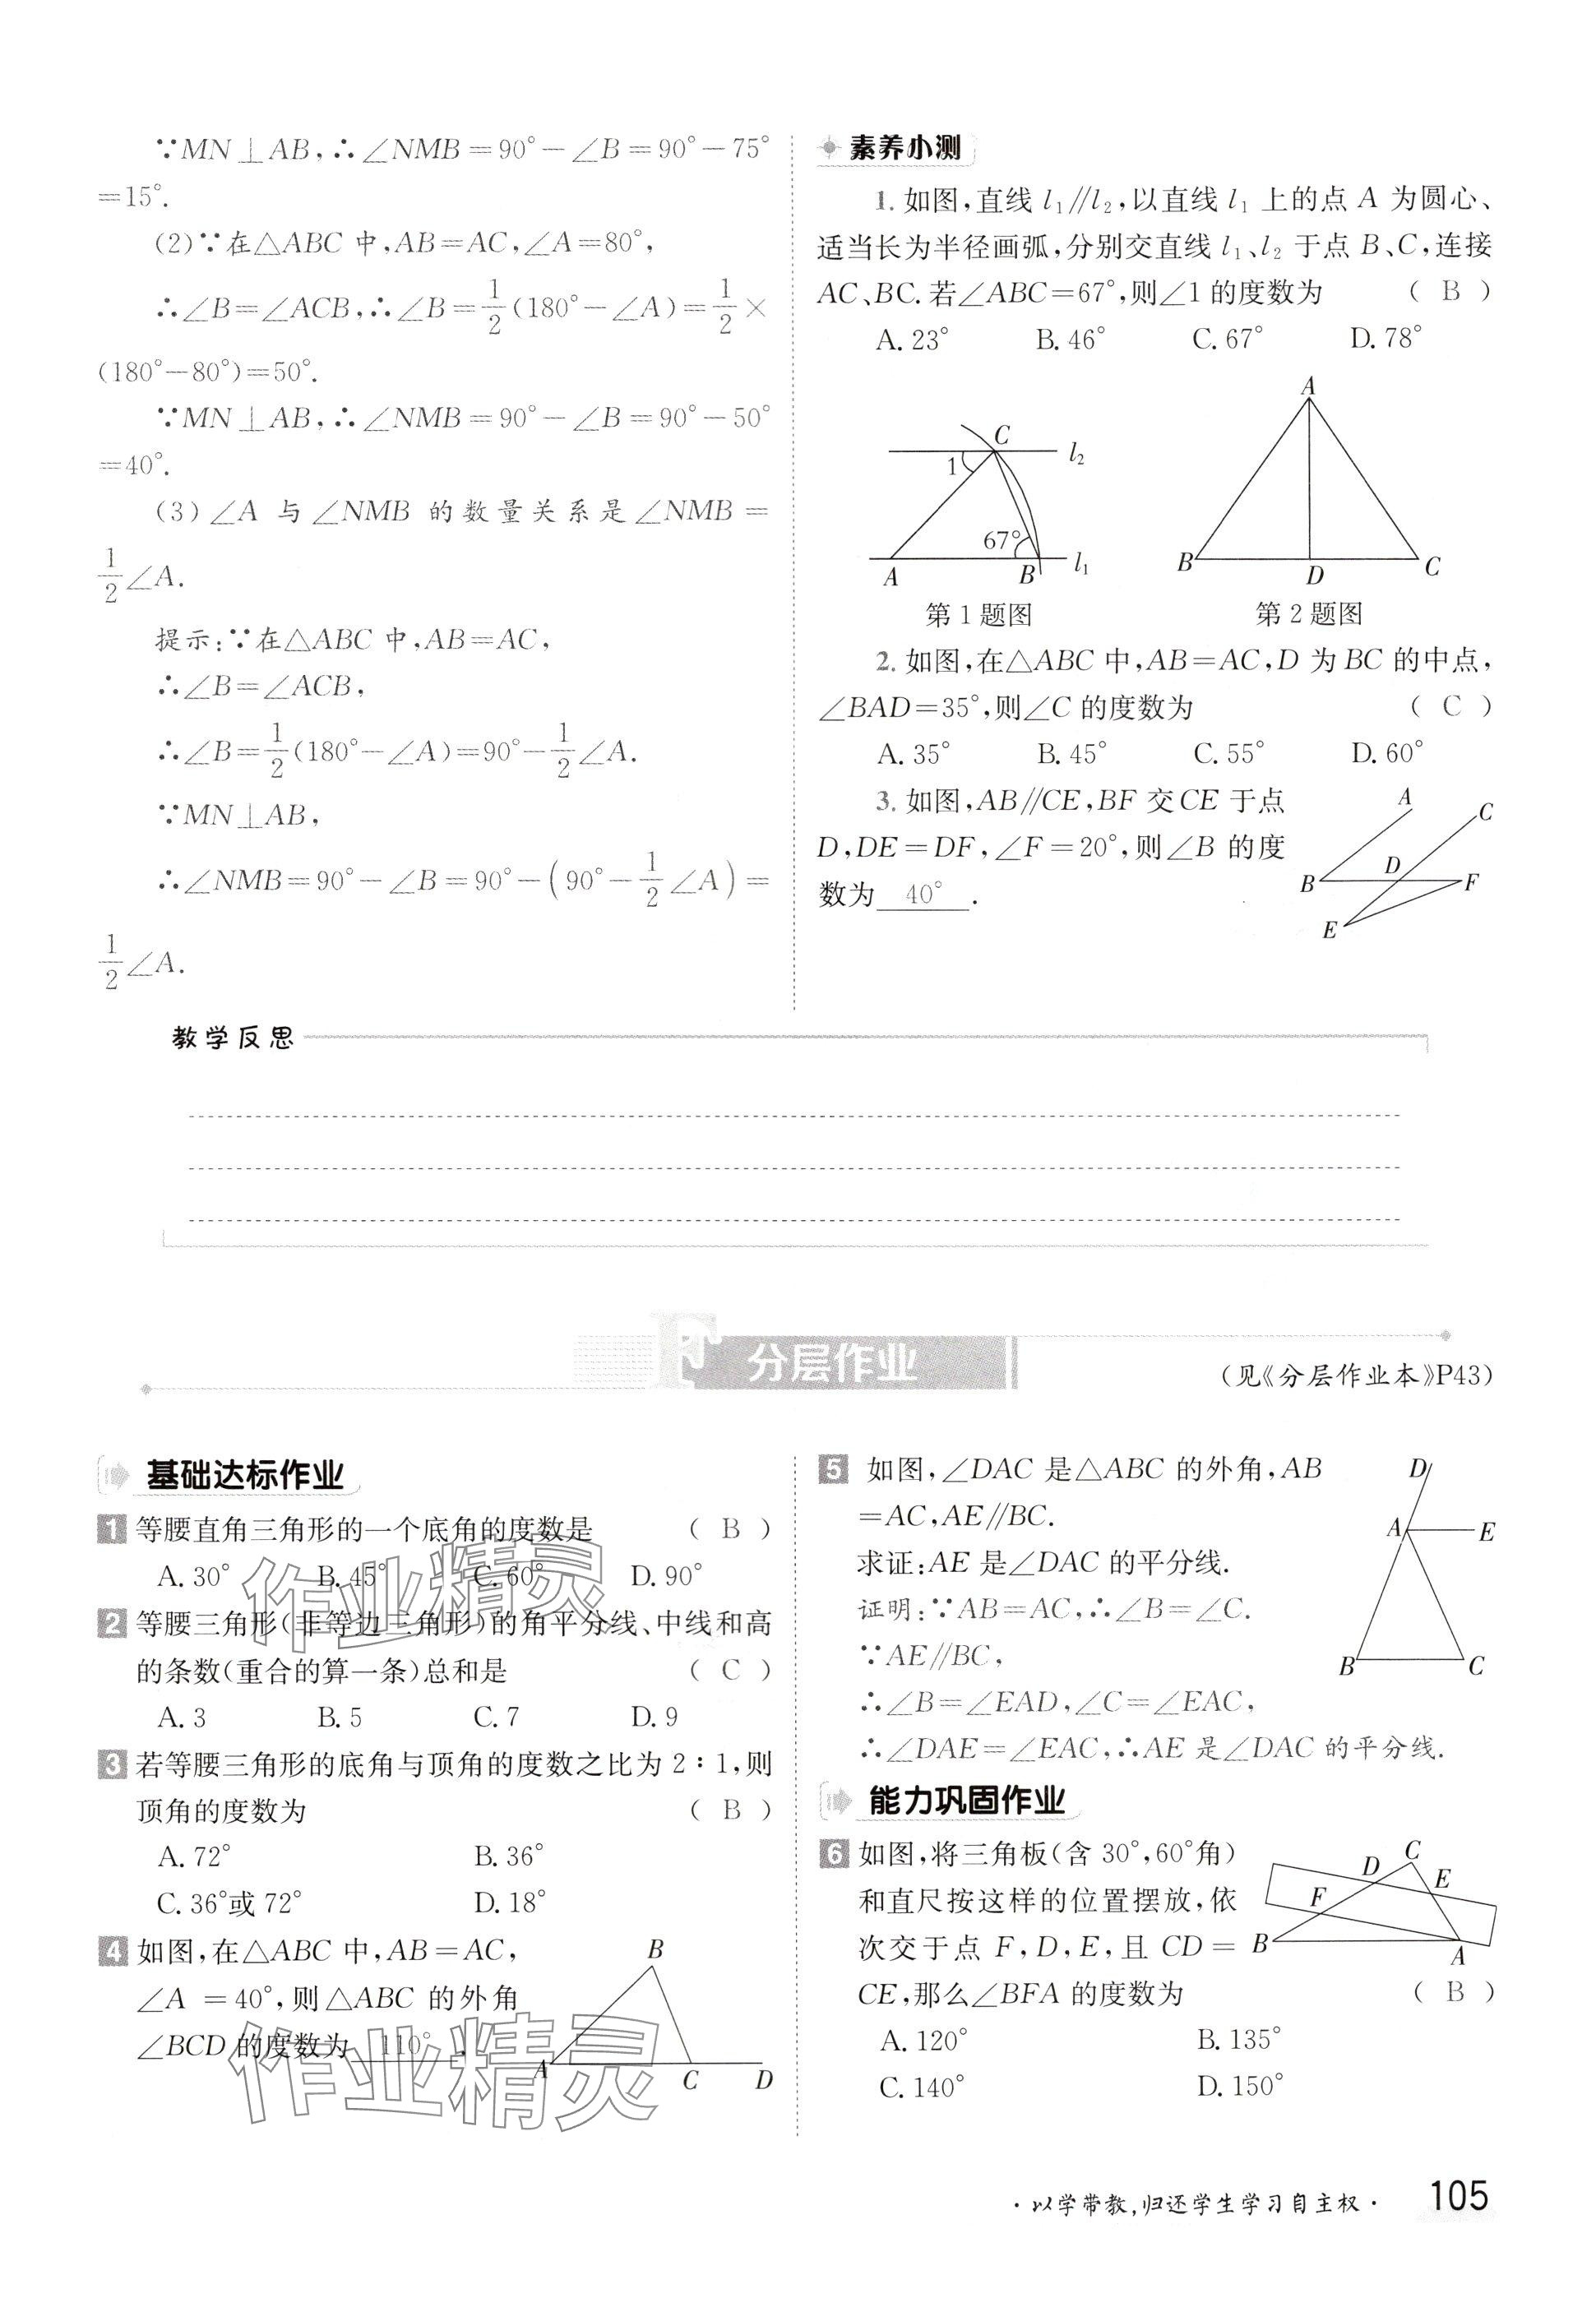 ∵MN⊥AB,∴∠NMB=90°-∠B=90°-75°
=15°.
(2)∵在△ABC 中,AB=AC,∠A=80°,
∴∠B=∠ACB,∴∠B=1/2(180°-∠A)=1/2×
(180°-80°)=50°.
∵MN⊥AB,∴∠NMB=90°-∠B=90°-50°
=40°.
(3)∠A 与∠NMB 的数量关系是∠NMB=
1/2∠A.
提示:∵在△ABC 中,AB=AC,
∴∠B=∠ACB,
∴∠B=1/2(180°-∠A)=90°-1/2∠A.
∵MN⊥AB,
∴∠NMB=90°-∠B=90°-(90°-1/2∠A)=
1/2∠A.
素养小测
1. 如图,直线 l₁∥l₂,以直线 l₁ 上的点 A 为圆心、
适当长为半径画弧,分别交直线 l₁、l₂ 于点 B、C,连接
AC、BC. 若∠ABC=67°,则∠1 的度数为 ( B )
A. 23° B. 46° C. 67° D. 78°
C
l₂
1
67°
A
B
l₁
第 1 题图
A
B
D
C
第 2 题图
2. 如图,在△ABC 中,AB=AC,D 为 BC 的中点,
∠BAD=35°,则∠C 的度数为 ( C )
A. 35° B. 45° C. 55° D. 60°
3. 如图,AB∥CE,BF 交 CE 于点
D,DE=DF,∠F=20°,则∠B 的度
数为 40° .
A
C
D
B
F
E
教学反思
F 分层作业
(见《分层作业本》P43)
基础达标作业
1 等腰直角三角形的一个底角的度数是 ( B )
A. 30° B. 45° C. 60° D. 90°
2 等腰三角形(非等边三角形)的角平分线、中线和高
的条数(重合的算一条)总和是 ( C )
A. 3 B. 5 C. 7 D. 9
3 若等腰三角形的底角与顶角的度数之比为 2∶1,则
顶角的度数为 ( B )
A. 72° B. 36°
C. 36°或 72° D. 18°
4 如图,在△ABC 中,AB=AC,
∠A =40°,则△ABC 的外角
∠BCD 的度数为 110° .
B
A
C
D
作业精灵
作业精灵
5 如图,∠DAC 是△ABC 的外角,AB
=AC,AE∥BC.
求证:AE 是∠DAC 的平分线.
证明:∵AB=AC,∴∠B=∠C.
∵AE∥BC,
∴∠B=∠EAD,∠C=∠EAC,
∴∠DAE=∠EAC,∴AE 是∠DAC 的平分线.
D
A
E
B
C
能力巩固作业
6 如图,将三角板(含 30°,60°角)
和直尺按这样的位置摆放,依
次交于点 F,D,E,且 CD=
CE,那么∠BFA 的度数为 ( B )
A. 120° B. 135°
C. 140° D. 150°
C
D
E
F
B
A
· 以学带教,归还学生学习自主权 · 105